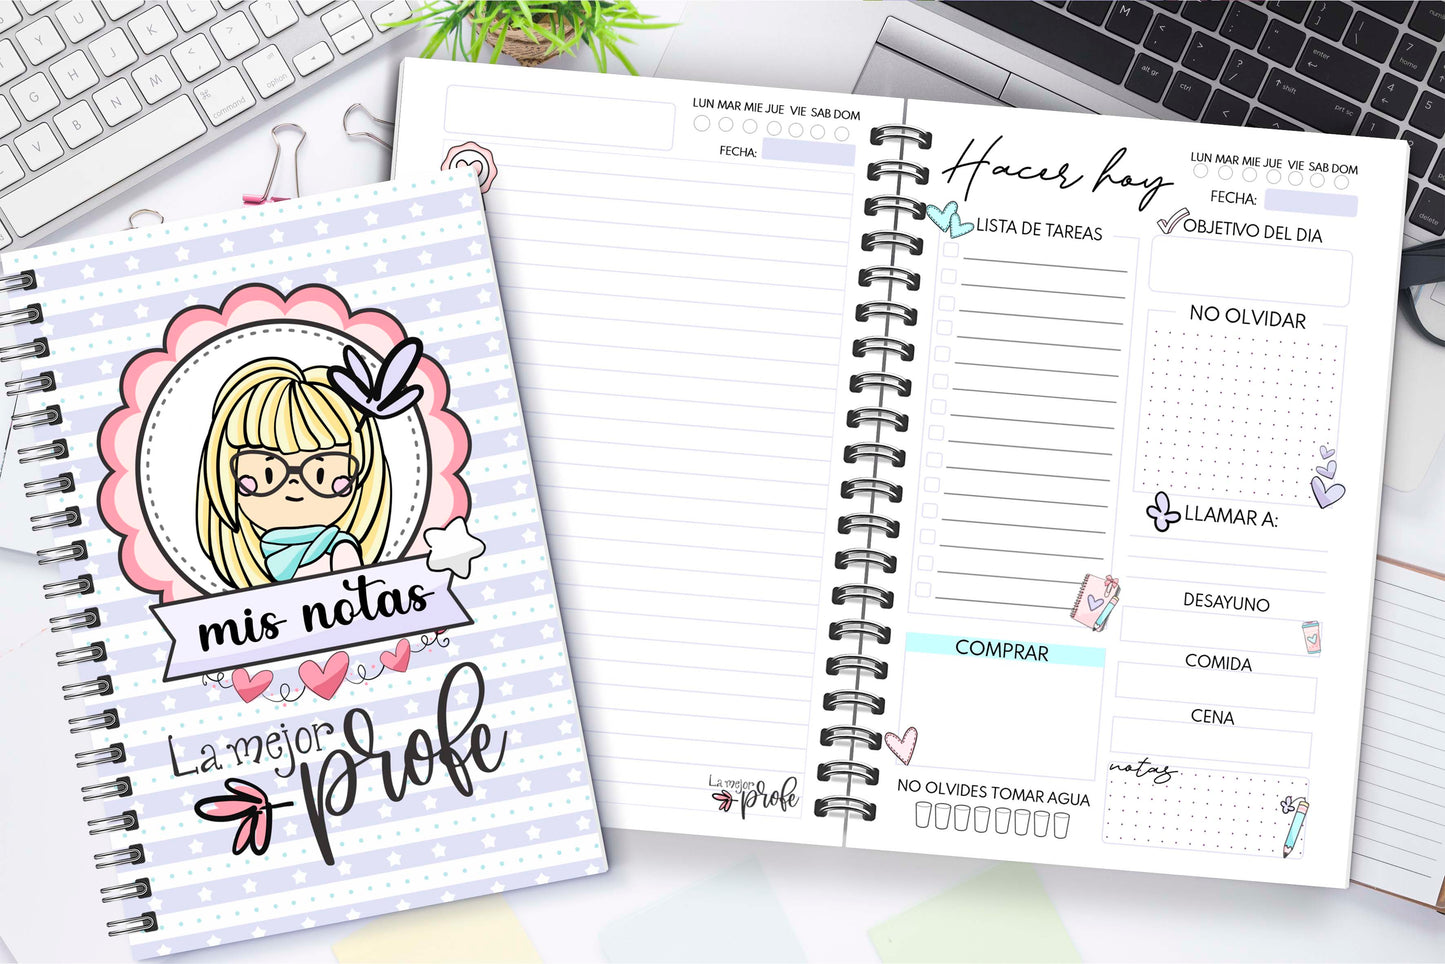 mis notas
La mejor
profe
LUN MAR MIE JUE VIE SAB DOM
FECHA:
La mejor
profe
Hacer hoy
LUN MAR MIE JUE VIE SAB DOM
FECHA:
LISTA DE TAREAS
OBJETIVO DEL DIA
NO OLVIDAR
LLAMAR A:
DESAYUNO
COMPRAR
COMIDA
CENA
notas
NO OLVIDES TOMAR AGUA